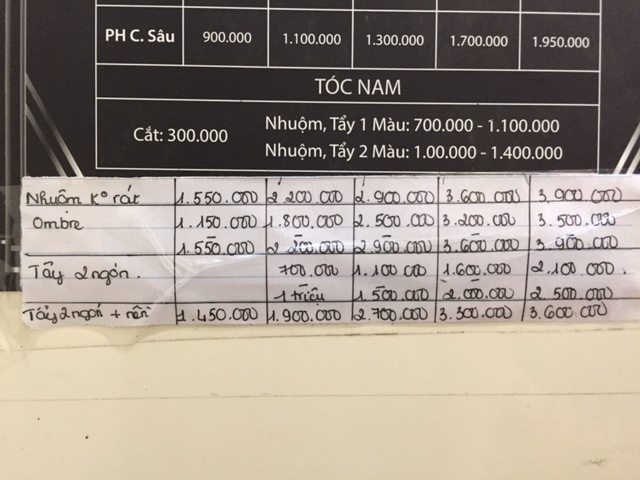 PH C. Sâu 900.000 1.100.000 1.300.000 1.700.000 1.950.000
TÓC NAM
Cắt: 300.000
Nhuộm, Tẩy 1 Màu: 700.000 - 1.100.000
Nhuộm, Tẩy 2 Màu: 1.00.000 - 1.400.000
Nhuộm K° rát 1.550.000 2.200.000 2.900.000 3.600.000 3.900.000
Ombre 1.150.000 1.800.000 2.500.000 3.200.000 3.500.000
1.550.000 2.200.000 2.900.000 3.600.000 3.900.000
Tẩy 2 ngón. 700.000 1.100.000 1.600.000 2.100.000.
1 triệu 1.500.000 2.000.000 2.500.000
Tẩy 2 ngón + nền 1.450.000 1.900.000 2.700.000 3.300.000 3.600.000